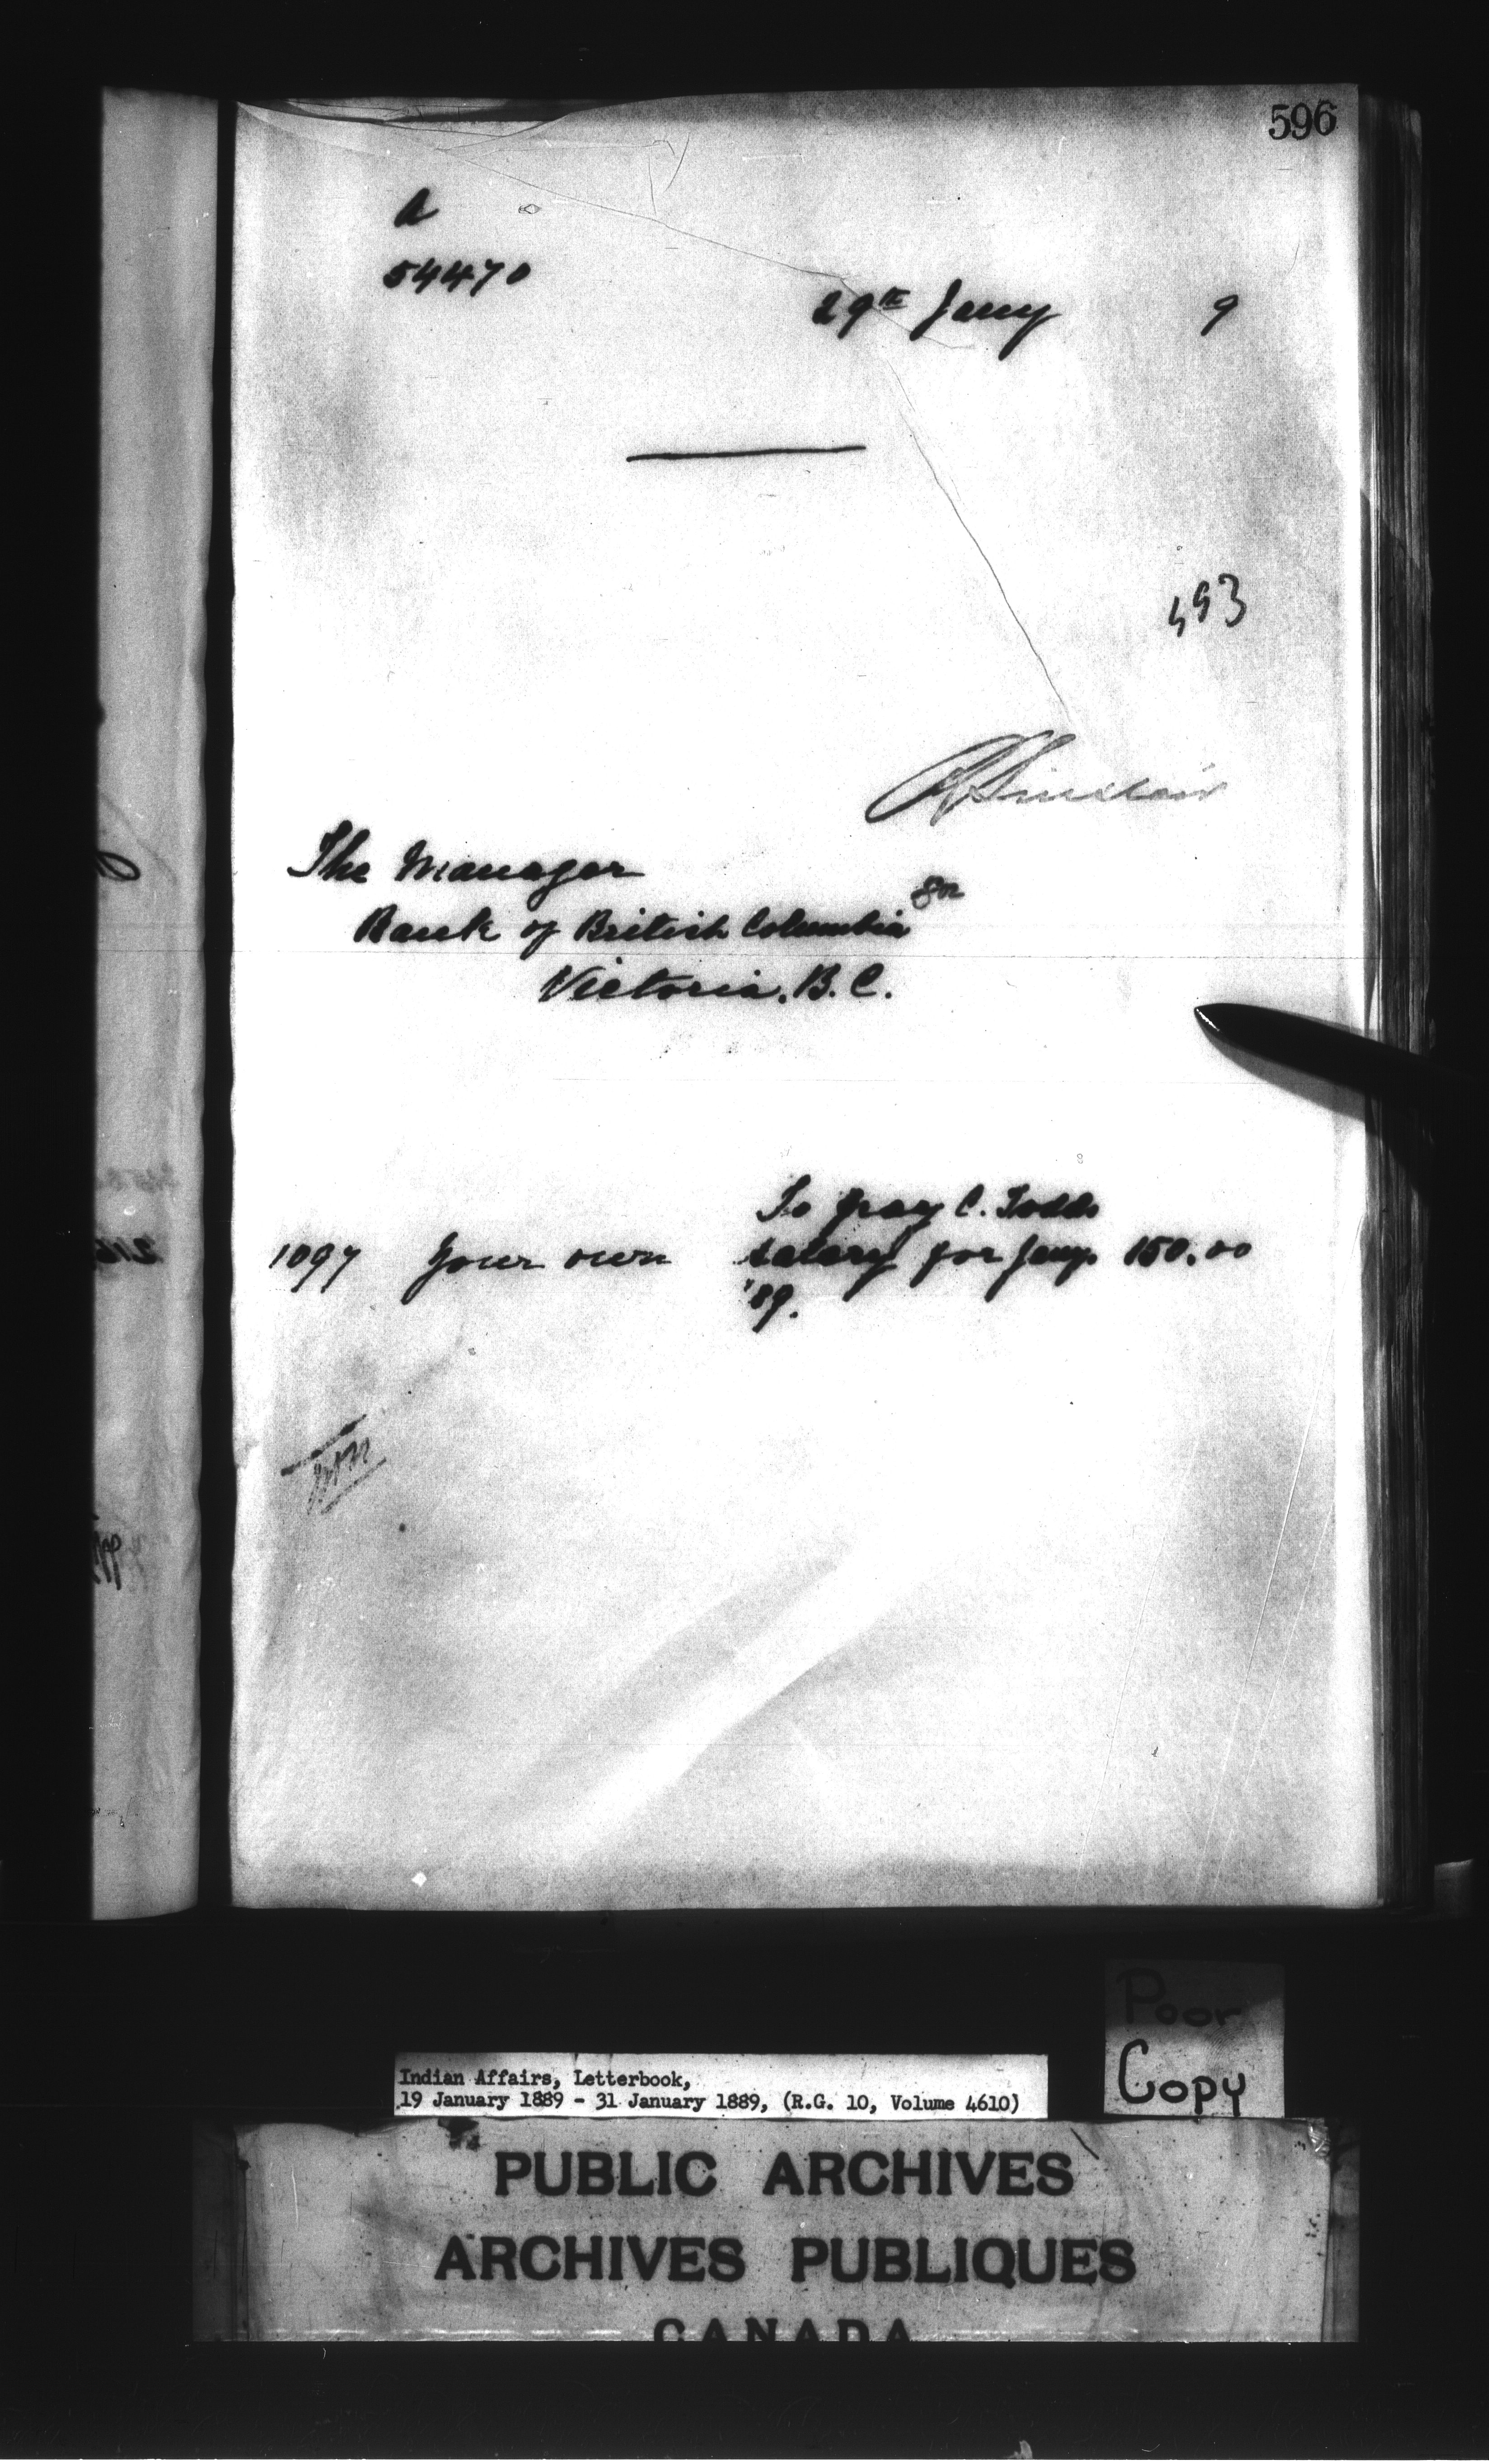 596
A
54470
29th Jany 9
593
R Sinclair
The Manager
Bank of British Columbia
Victoria, B. C.
To pay C. Todds
1097 Your own salary for Jany 150.00
'89.
Poor
Copy
Indian Affairs, Letterbook,
19 January 1889 - 31 January 1889, (R.G. 10, Volume 4610)
PUBLIC ARCHIVES
ARCHIVES PUBLIQUES
CANADA